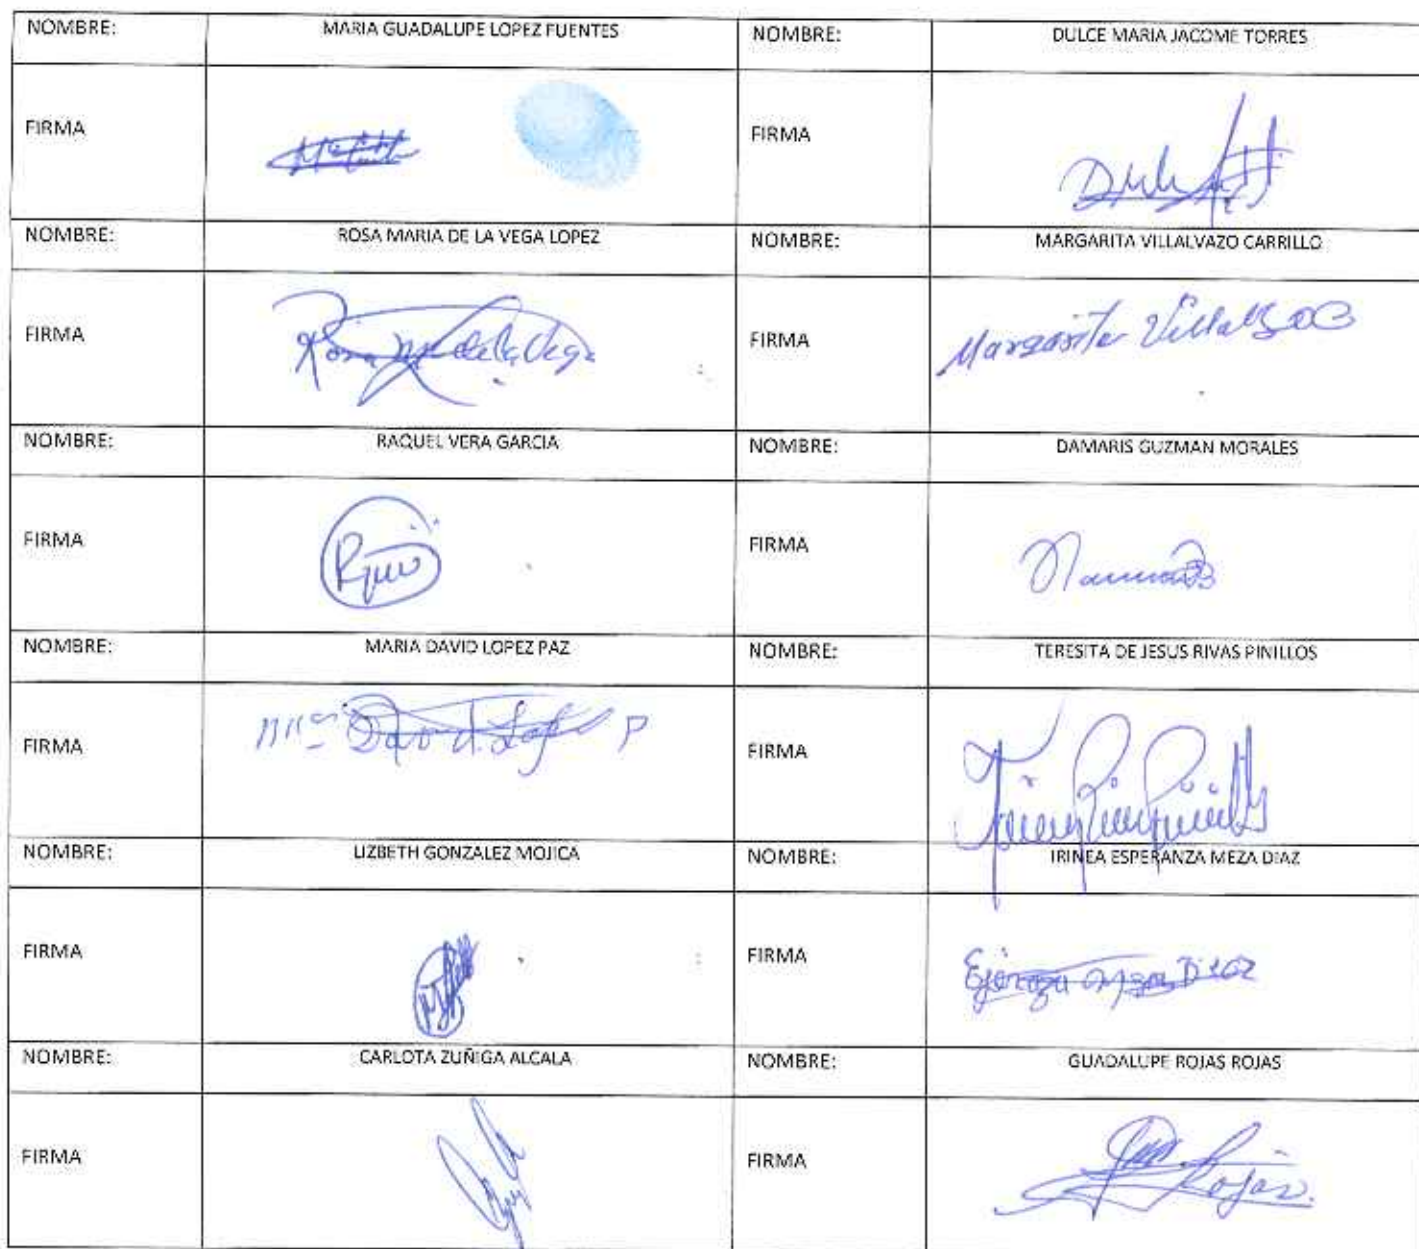 NOMBRE: MARIA GUADALUPE LOPEZ FUENTES NOMBRE: DULCE MARIA JACOME TORRES
FIRMA FIRMA
NOMBRE: ROSA MARIA DE LA VEGA LOPEZ NOMBRE: MARGARITA VILLALVAZO CARRILLO
FIRMA Rosa Ma de la Vega FIRMA Margarita
NOMBRE: RAQUEL VERA GARCIA NOMBRE: DAMARIS GUZMAN MORALES
FIRMA FIRMA
NOMBRE: MARIA DAVID LOPEZ PAZ NOMBRE: TERESITA DE JESUS RIVAS PINILLOS
FIRMA Ma David Lop P FIRMA
NOMBRE: LIZBETH GONZALEZ MOJICA NOMBRE: IRINEA ESPERANZA MEZA DIAZ
FIRMA FIRMA
NOMBRE: CARLOTA ZUÑIGA ALCALA NOMBRE: GUADALUPE ROJAS ROJAS
FIRMA FIRMA Rojas.